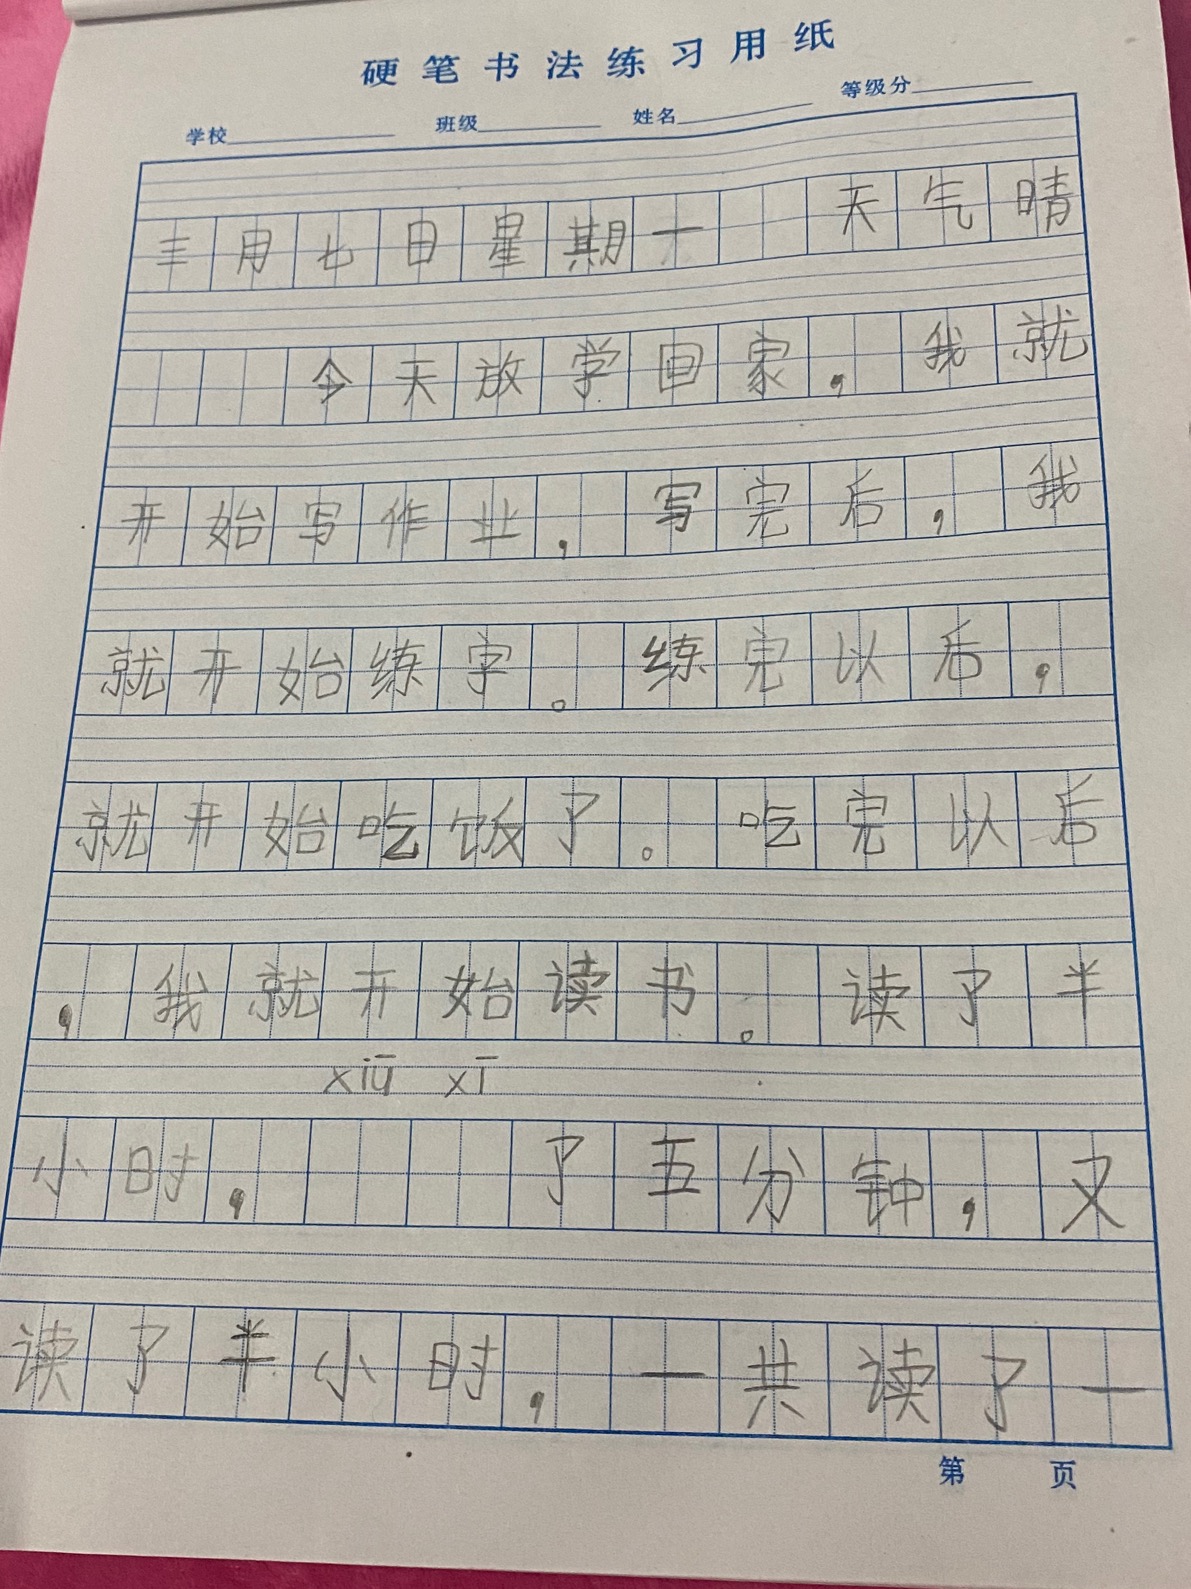 硬笔书法练习用纸
学校 班级 姓名 等级分
三月七日星期一 天气晴
今天放学回家，我就
开始写作业，写完后，我
就开始练字。练完以后，
就开始吃饭了。吃完以后
，我就开始读书。读了半
xiū xī
小时， 了五分钟，又
读了半小时，一共读了一
第 页